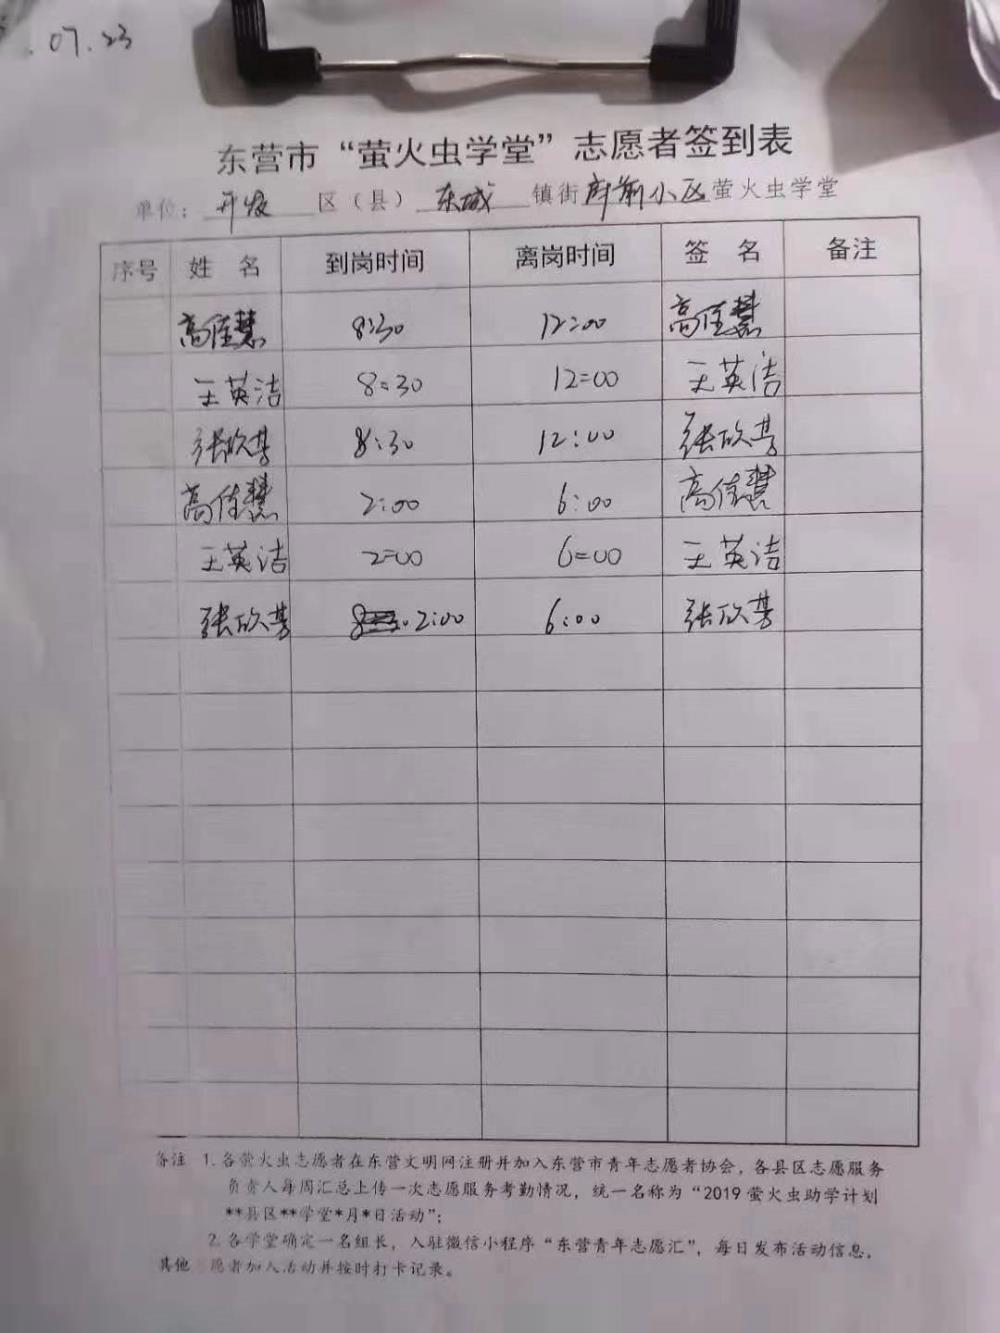 .07.23
东营市“萤火虫学堂”志愿者签到表
单位：开发区（县）东城镇街府前小区萤火虫学堂
序号 姓 名 到岗时间 离岗时间 签 名 备注
高佳慧 8:30 12:00 高佳慧
王英洁 8:30 12:00 王英洁
张欣 8:30 12:00 张欣
高佳慧 2:00 6:00 高佳慧
王英洁 2:00 6:00 王英洁
张欣 2:00 6:00 张欣
备注 1.各萤火虫志愿者在东营文明网注册并加入东营市青年志愿者协会，各县区志愿服务
负责人每周汇总上传一次志愿服务考勤情况，统一名称为“2019萤火虫助学计划
**县区**学堂*月*日活动”；
2.各学堂确定一名组长，入驻微信小程序“东营青年志愿汇”，每日发布活动信息，
其他 愿者加入活动并按时打卡记录。